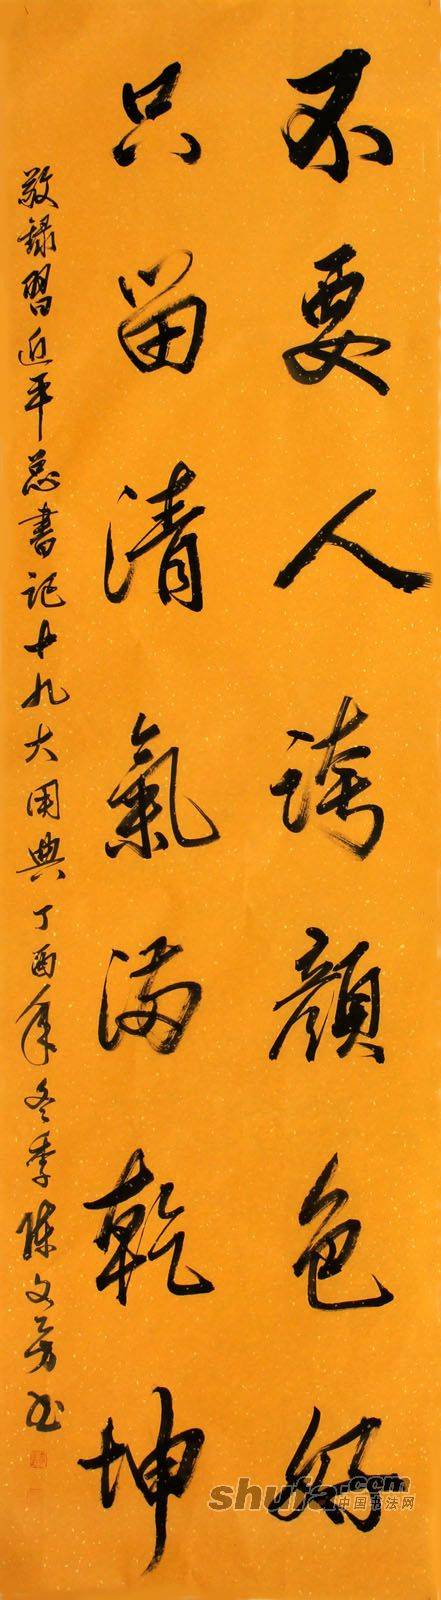 不要人誇顔色好
只留清氣滿乾坤
敬録習近平总書記十九大用典丁酉年冬季陈文芳书
shufa.com
中国书法网